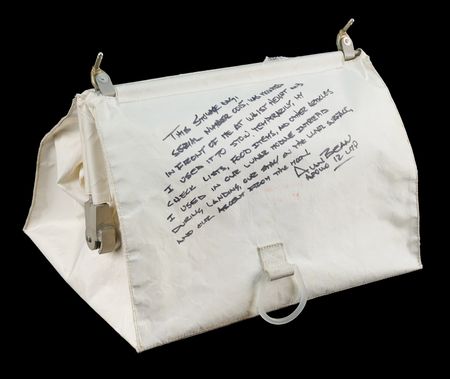 THIS STOWAGE BAG,
SERIAL NUMBER 1005, WAS MOUNTED
IN FRONT OF ME AT WAIST HEIGHT AND
I USED IT TO STOW, TEMPORARILY, MY
CHECK LISTS, FOOD ITEMS, AND OTHER ARTICLES
I USED IN OUR LUNAR MODULE INTREPID
DURING LANDING, OUR STAY ON THE LUNAR SURFACE,
AND OUR ASCENT FROM THE MOON.
ALAN BEAN
APOLLO 12 LMP